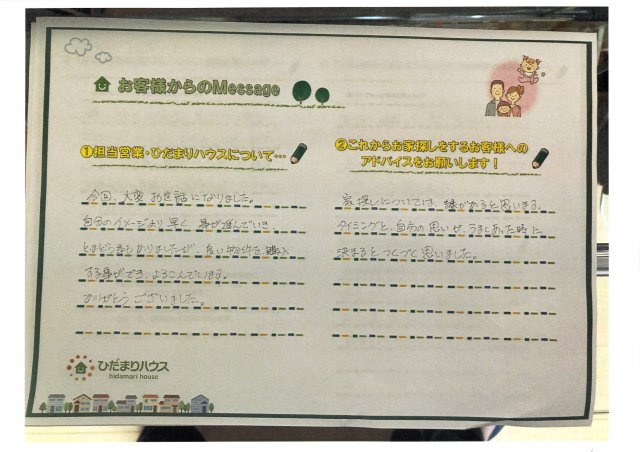 お客様からのMessage
①担当営業・ひだまりハウスについて…
今回、大変お世話になりました。
自分のイメージより早く、事が運んでいき、
とまどう事もありましたが、良い物件を購入
する事ができ、よろこんでいます。
ありがとうございました。
②これからお家探しをするお客様への
アドバイスをお願いします！
家探しについては、縁があると思います。
タイミングと、自分の思いが、うまくあった時に
決まると、つくづく思いました。
ひだまりハウス
hidamari house